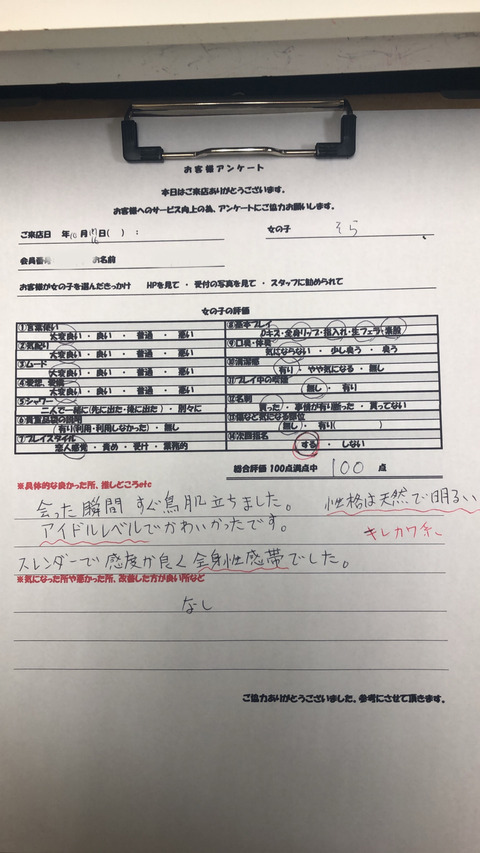 お客様アンケート
本日はご来店ありがとうございます。
お客様へのサービス向上の為、アンケートにご協力お願いします。
ご来店日 年10月 日( ) : 女の子 そら
会員番 お名前
お客様が女の子を選んだきっかけ HPを見て ・ 受付の写真を見て ・ スタッフに勧められて
女の子の評価
①言葉使い
大変良い ・ 良い ・ 普通 ・ 悪い
②気配り
大変良い ・ 良い ・ 普通 ・ 悪い
③ムード
大変良い ・ 良い ・ 普通 ・ 悪い
④愛想、愛嬌
大変良い ・ 良い ・ 普通 ・ 悪い
⑤シャワー
二人で一緒に(先に出た・後に出た) ・ 別々に
⑥貴重品袋の説明
有り(利用・利用しなかった) ・ 無し
⑦プレイスタイル
恋人感覚 ・ 責め ・ 受け ・ 業務的
⑧基本プレイ
Dキス・全身リップ・指入れ・生フェラ・素股
⑨口臭・体臭
気にならない ・ 少し臭う ・ 臭う
⑩清潔感
有り ・ やや気になる ・ 無し
⑪プレイ中の喫煙
無し ・ 有り
⑫名刺
貰った ・ 事情が有り断った ・ 貰ってない
⑬傷など気になる部位
無し ・ 有り( )
⑭次回指名
する ・ しない
総合評価 100点満点中 100 点
※具体的な良かった所、推しどころetc
会った瞬間 すぐ鳥肌立ちました。 性格は天然で明るい
アイドルレベルでかわいかったです。 キレカワ系
スレンダーで感度が良く全身性感帯でした。
※気になった所や悪かった所、改善した方が良い所など
なし
ご協力ありがとうございました。参考にさせて頂きます。